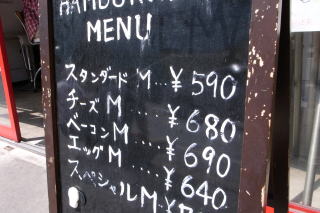 HAMBURGER
MENU
スタンダード M...￥590
チーズ M....￥680
ベーコン M....￥690
エッグ M....￥640
スペシャル M.￥